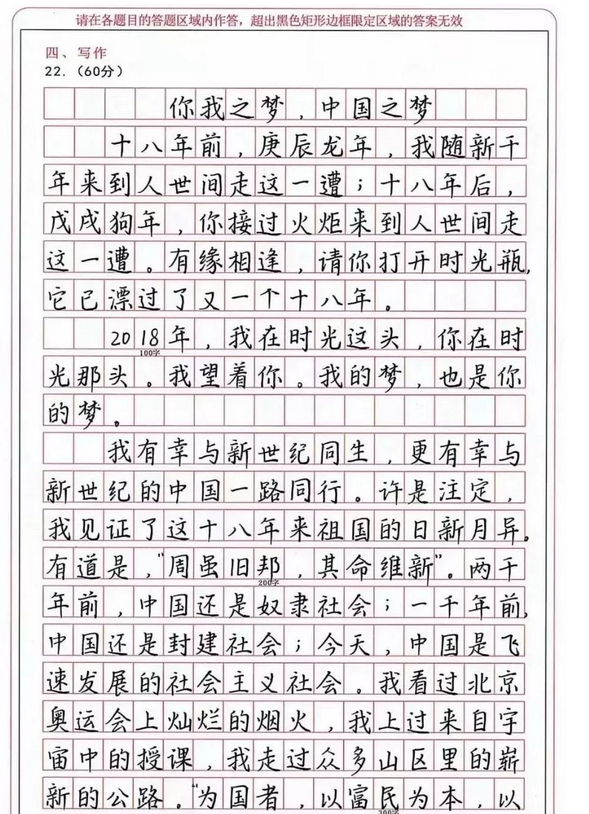 请在各题目的答题区域内作答，超出黑色矩形边框限定区域的答案无效
四、写作
22.（60分）
你我之梦，中国之梦
十八年前，庚辰龙年，我随新千
年来到人世间走这一遭；十八年后，
戊戌狗年，你接过火炬来到人世间走
这一遭。有缘相逢，请你打开时光瓶，
它已漂过了又一个十八年。
2018年，我在时光这头，你在时
100字
光那头。我望着你。我的梦，也是你
的梦。
我有幸与新世纪同生，更有幸与
新世纪的中国一路同行。许是注定，
我见证了这十八年来祖国的日新月异。
有道是，“周虽旧邦，其命维新”。两千
200字
年前，中国还是奴隶社会；一千年前，
中国还是封建社会；今天，中国是飞
速发展的社会主义社会。我看过北京
奥运会上灿烂的烟火，我上过来自宇
宙中的授课，我走过众多山区里的崭
新的公路。“为国者，以富民为本，以
300字